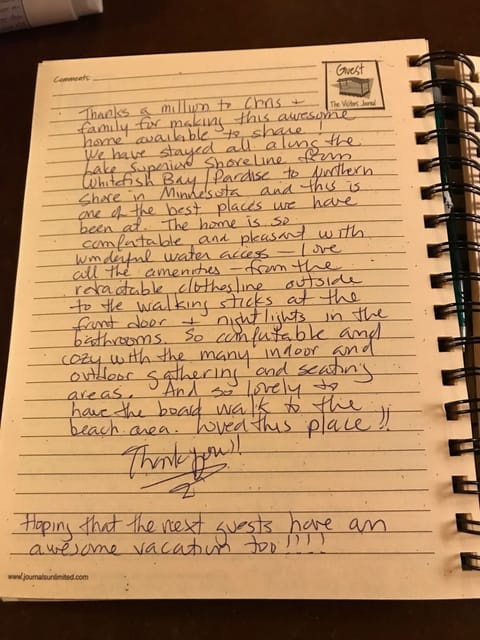 Comments
Guest
The Visitors Journal
Thanks a million to Chris +
family for making this awesome
home available to share!
We have stayed all along the
Lake Superior Shoreline from
Whitefish Bay/Pardise to Northern
Shore in Minnesota and this is
one of the best places we have
been at. The home is so
comfortable and pleasant with
wonderful water access - love
all the amenities - from the
retractable clothesline outside
to the walking sticks at the
front door + nightlights in the
bathrooms. So comfortable and
cozy with the many indoor and
outdoor gathering and seating
areas. And so lovely to
have the board walk to the
beach area. Loved this place!!
Thank you!!
Hoping that the next guests have an
awesome vacation too!!!!
www.journalsunlimited.com